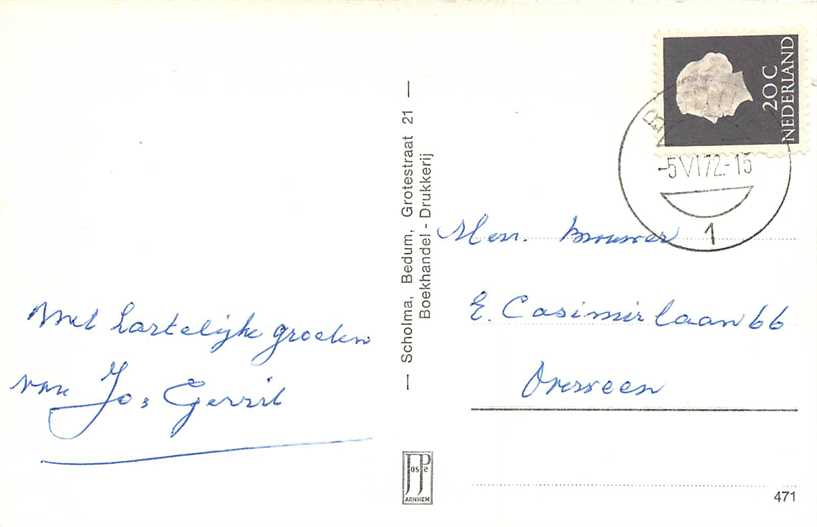 Met hartelijke groeten
van Jo, Gerrit
— Scholma, Bedum, Grotestraat 21 —
Boekhandel - Drukkerij
JosPé
ARNHEM
20 C
NEDERLAND
-5 VI 72.-15
1
Men. Brouwer
E. Casimirlaan 66
Overveen
471